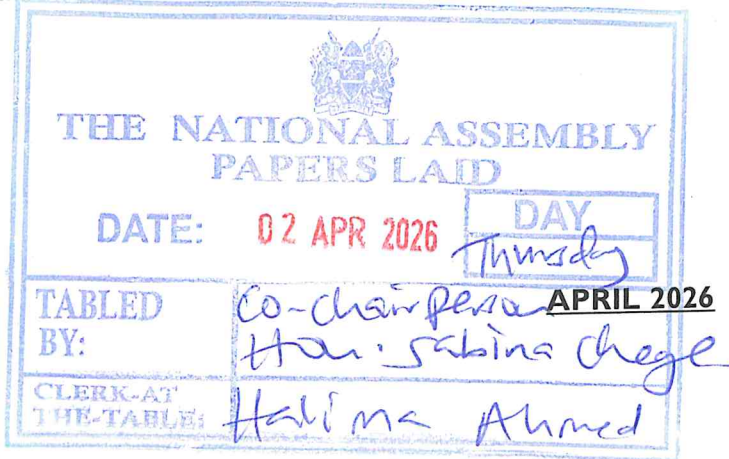 THE NATIONAL ASSEMBLY
PAPERS LAID
DATE: 02 APR 2026
DAY
Thursday
TABLED BY: Co-chairperson
Hon. Sabina Chege
APRIL 2026
CLERK-AT THE-TABLE: Halima Ahmed